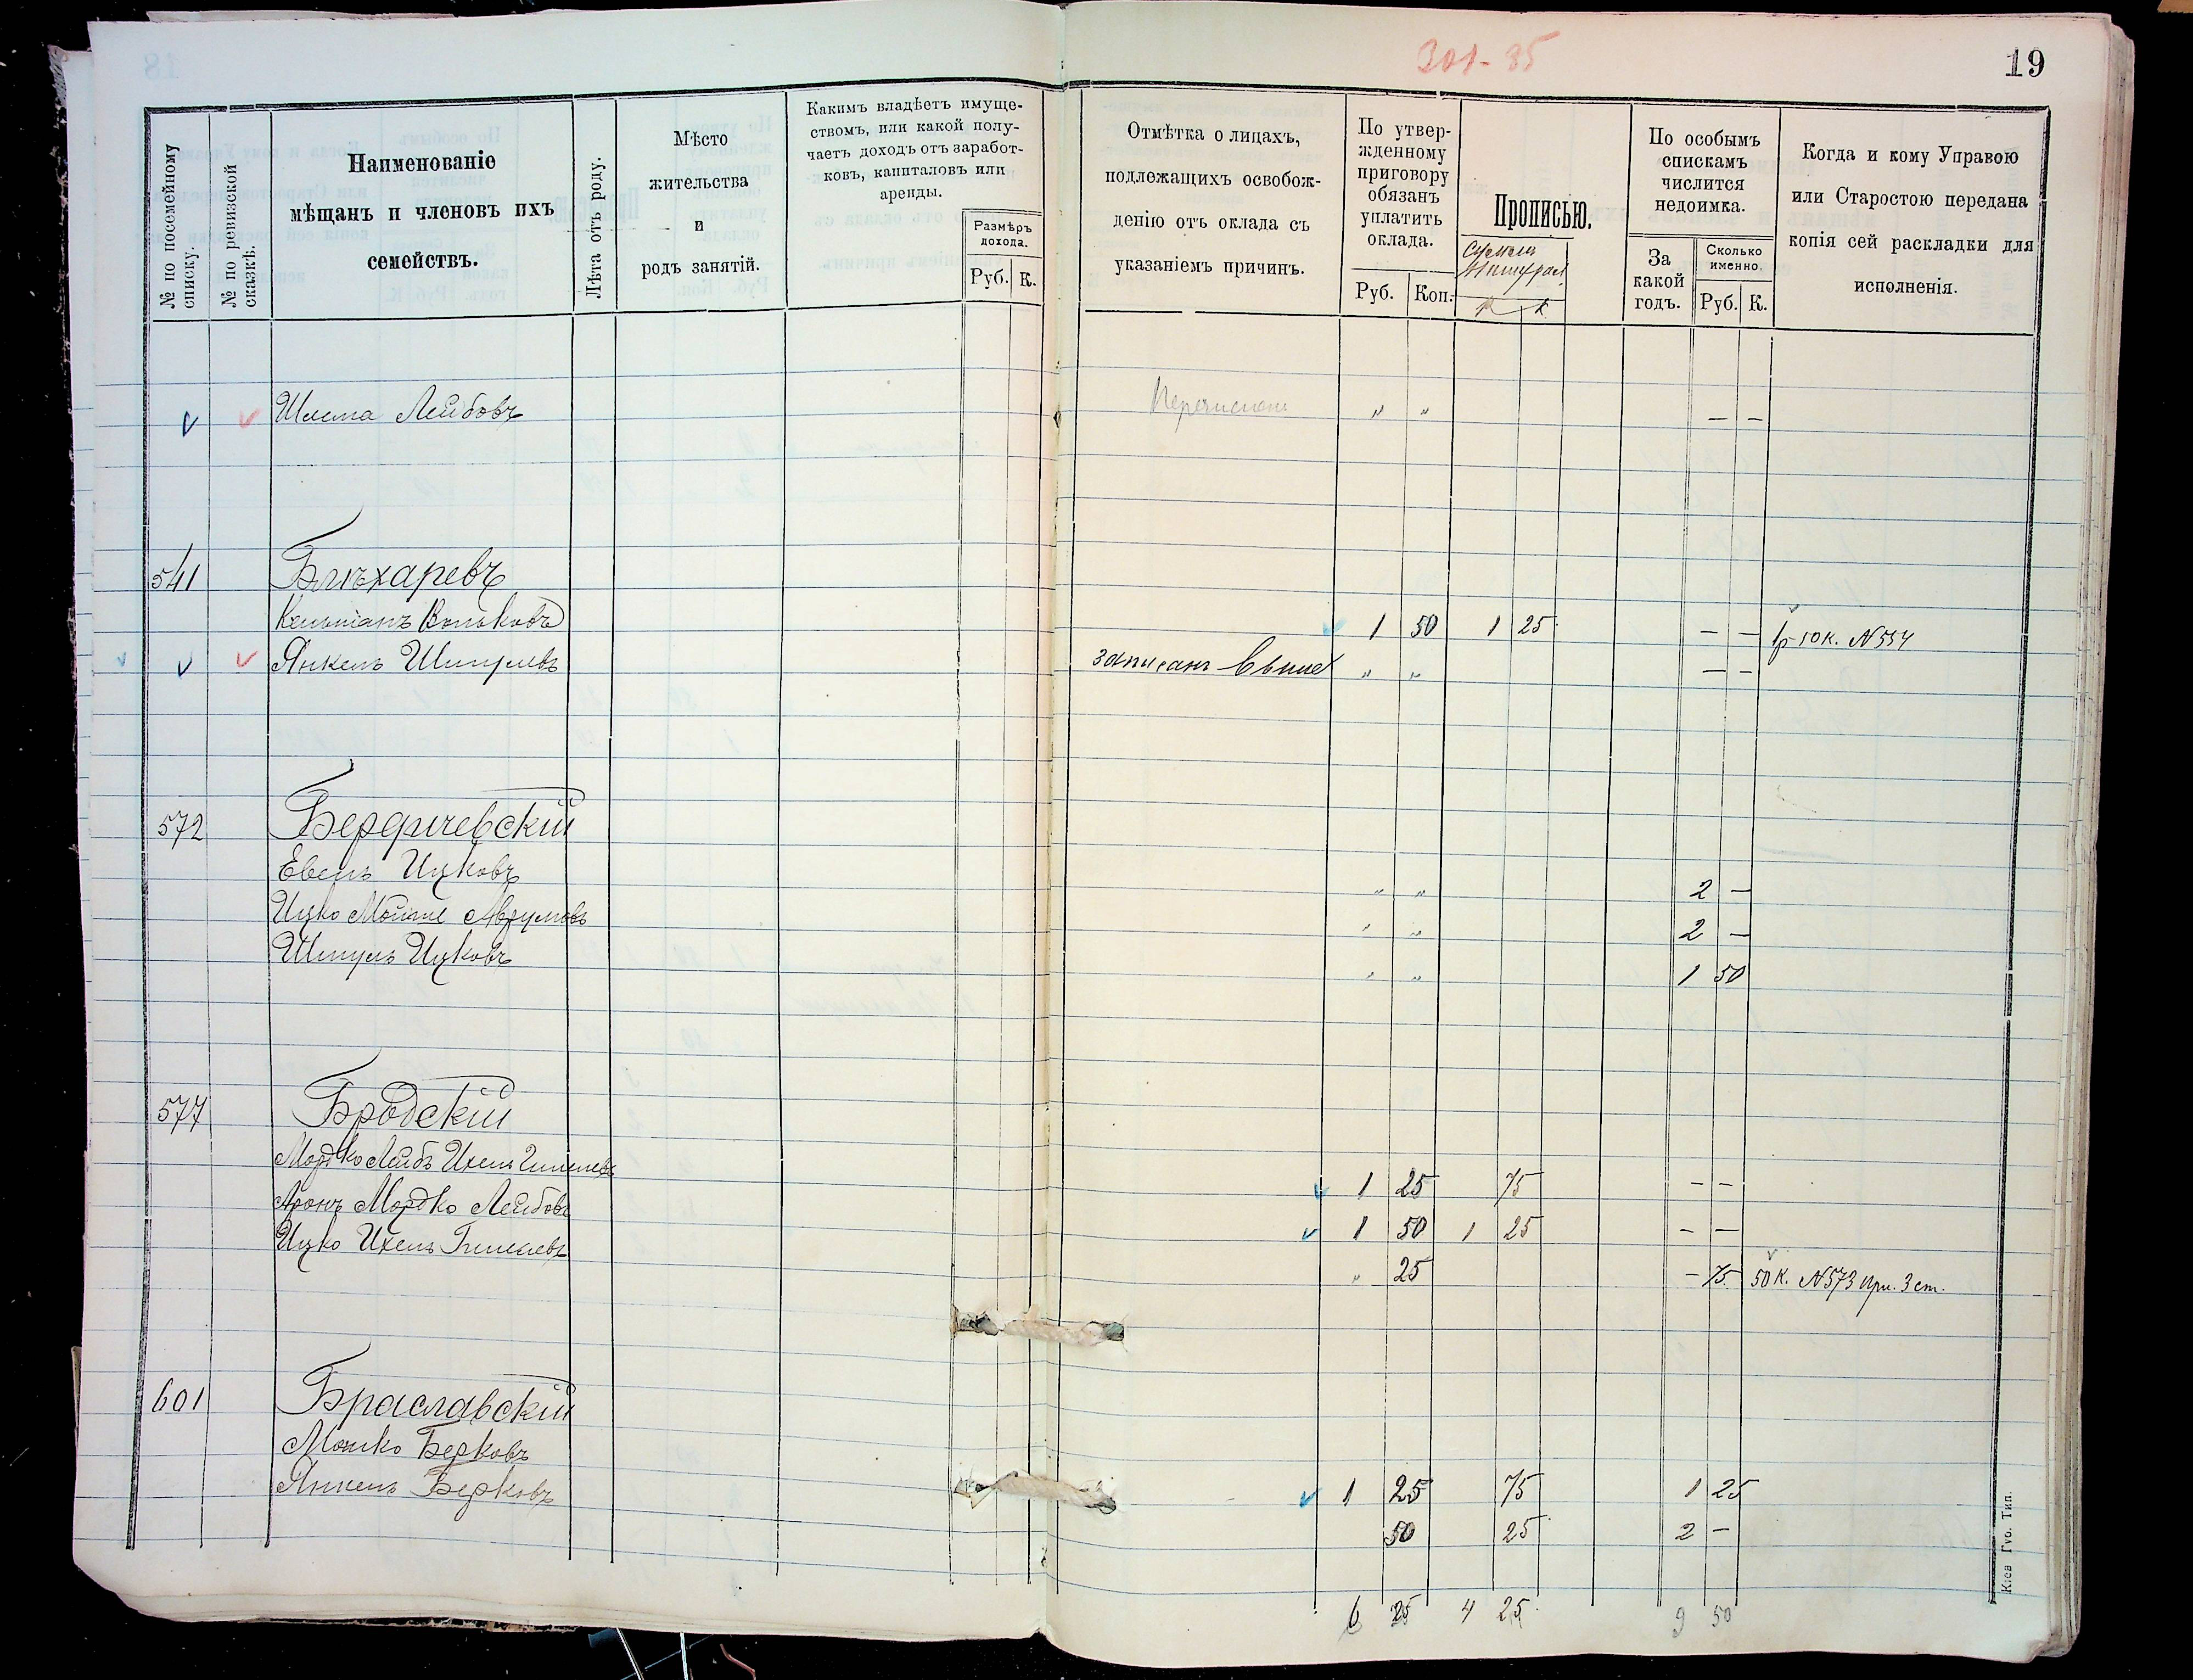 301-85
19
№ по посемейному списку.
№ по ревизской сказкѣ.
Наименованіе
мѣщанъ и членовъ ихъ
семействъ.
Лѣта отъ роду.
Мѣсто
жительства
и
родъ занятій.
Какимъ владѣетъ имуще-
ствомъ, или какой полу-
чаетъ доходъ отъ заработ-
ковъ, капиталовъ или
аренды.
Размѣръ
дохода.
Руб. К.
Отмѣтка о лицахъ,
подлежащихъ освобож-
денію отъ оклада съ
указаніемъ причинъ.
По утвер-
жденному
приговору
обязанъ
уплатить
оклада.
Руб. Коп.
Прописью.
По особымъ
спискамъ
числится
недоимка.
За
какой
годъ.
Сколько
именно.
Руб. К.
Когда и кому Управою
или Старостою передана
копія сей раскладки для
исполненія.
Шлема Лейбовъ „ „ — —
541
Кельманъ Вольковъ 1 50 1 25 — — 1р 50к. N 554
Янкель Шмулевъ записанъ выше „ „ — —
572 Бердичевскій
Евель Ицковъ „ „ 2 —
Ицко Мойше Аврумовъ „ „ 2 —
Шмуль Ицковъ „ „ 1 50
577 Бродскій
Мордко Лейбъ Ихель 1 25 75 — —
Аронъ Мордко Лейбовъ 1 50 1 25 — —
Ицко Ихель „ 25 — 75 50 к. N 573 при. 3 ст.
601 Браславскій
Мошко Берковъ 1 25 75 1 25
Янкель Берковъ 50 25 2 —
6 25 4 25 9 50
Кіев Губ. Тип.